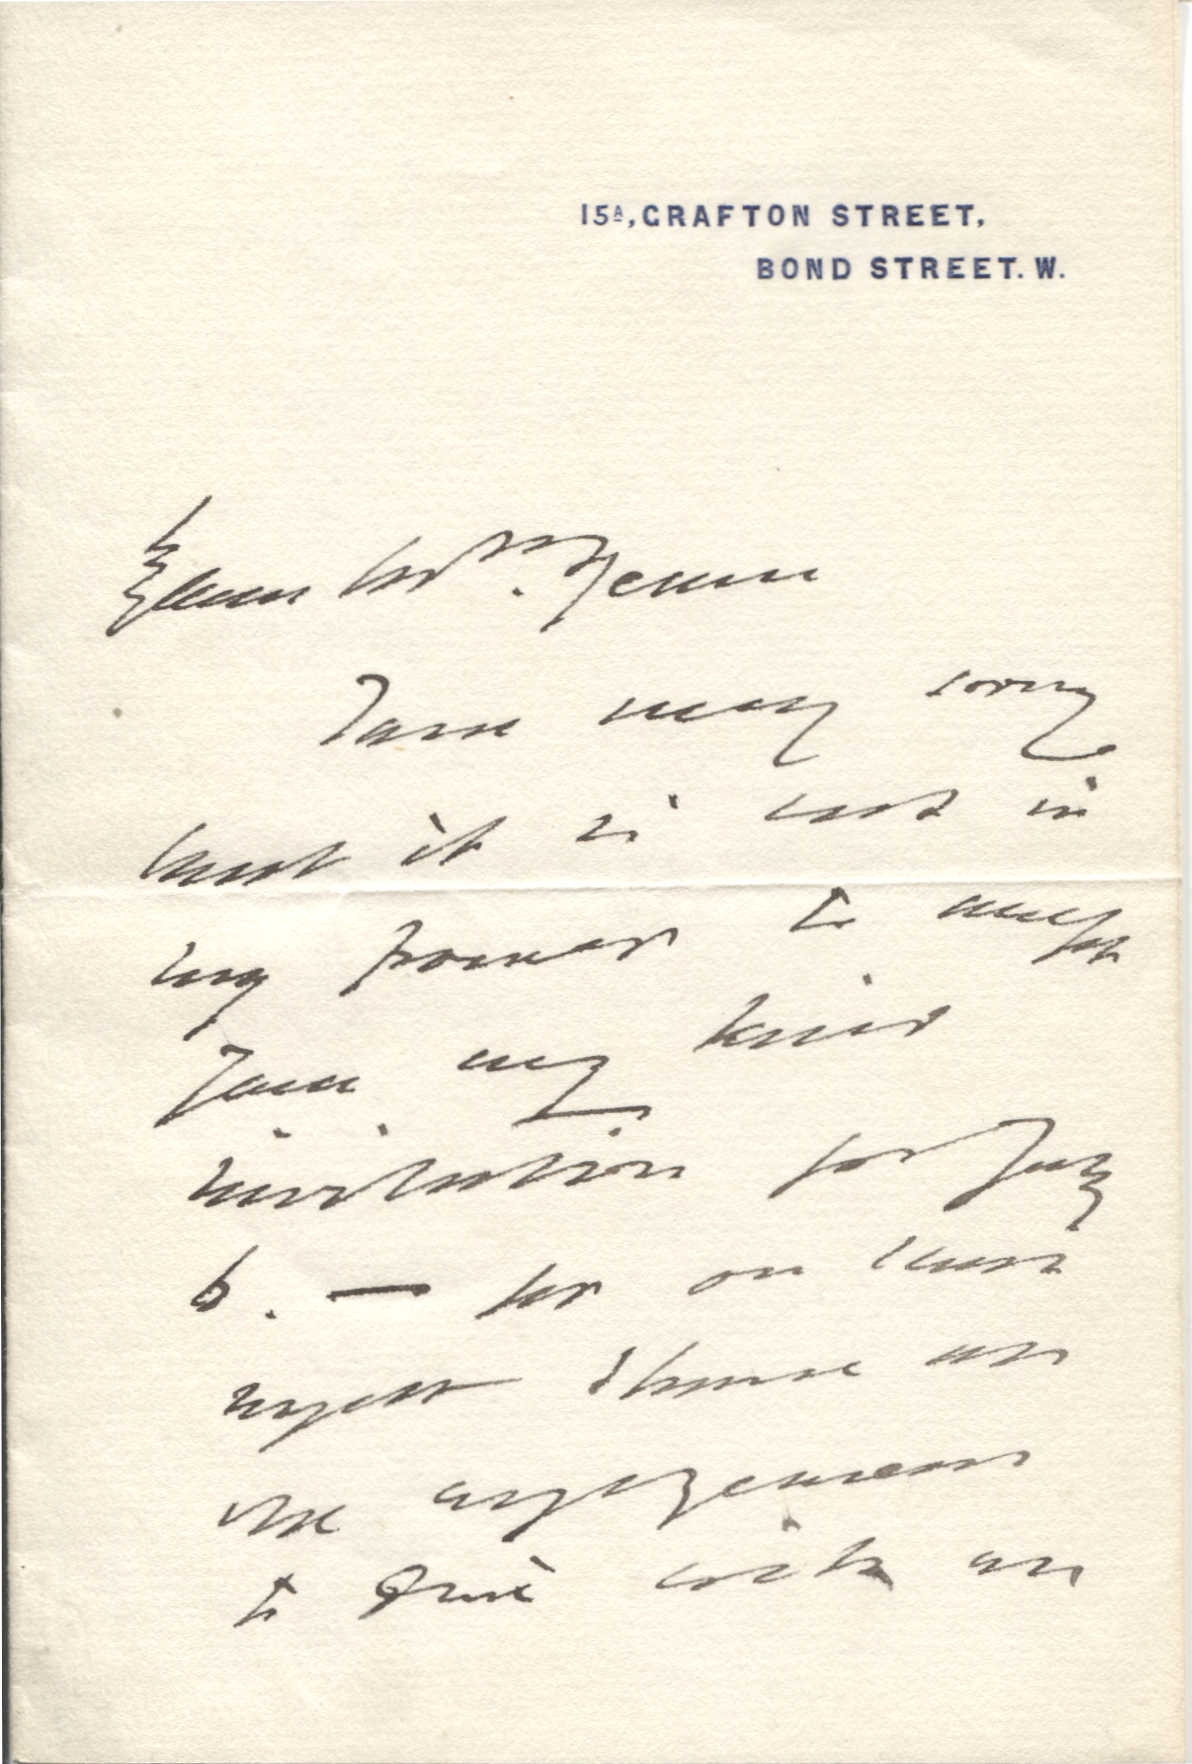 15A, GRAFTON STREET,
BOND STREET. W.
Dear Mrs.
I am very sorry
that it is not in
my power to accept
your very kind
invitation for July
6. — for on that
night I have an
old engagement
to dine with an